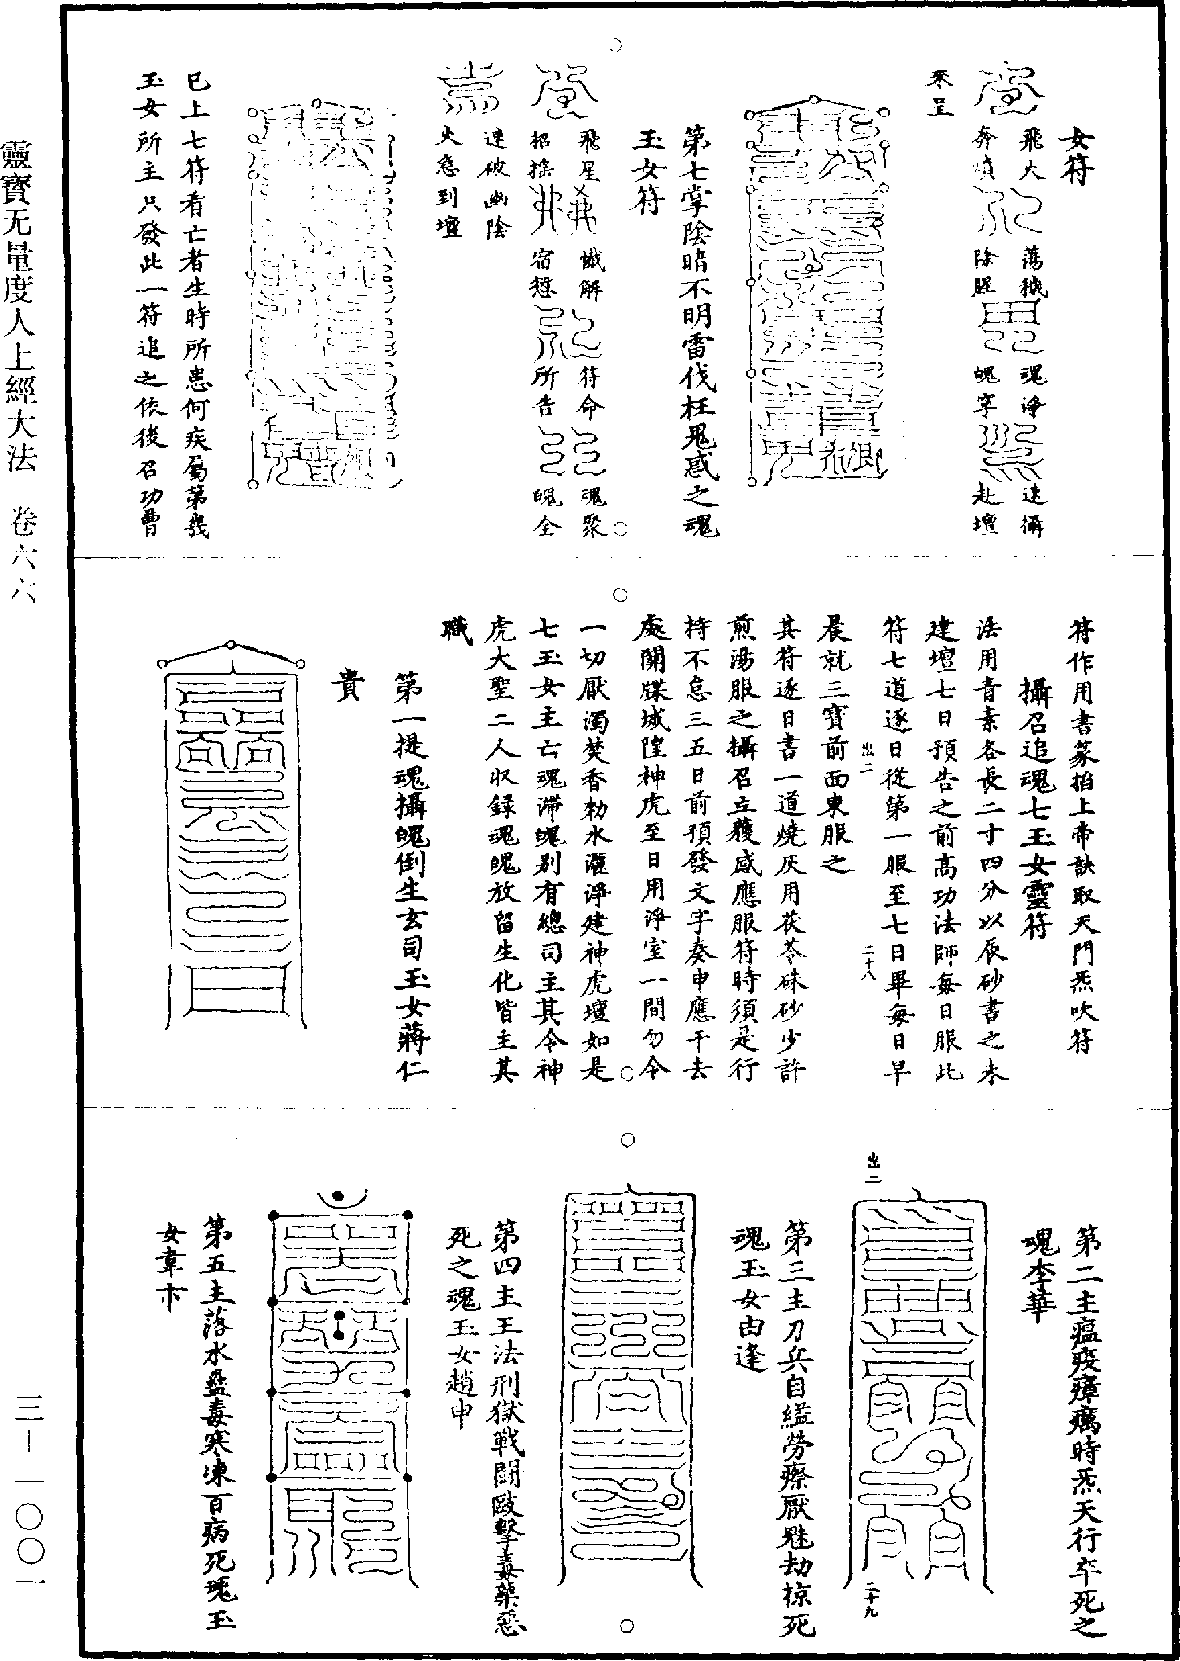 女符
飛火 蕩穢 魂淨 速攝
奔 除腥 魄寧 赴壇
來呈
第七掌陰暗不明雷伐枉鬼惑之魂
玉女符
飛星 懺解 符命 魂聚
招搖 宿愆 所告 魄全
速破幽陰
火急到壇
已上七符看亡者生時所患何疾屬第幾
玉女所主只發此一符追之依後召功曹
符作用書篆掐上帝訣取天門炁吹符
攝召追魂七玉女靈符
法用青素各長二寸四分以辰砂書之未
建壇七日預告之前高功法師每日服此
符七道逐日從第一服至七日畢每日早
晨就三寶前面東服之
其符逐日書一道燒灰用茯苓硃砂少許
煎湯服之攝召立獲感應服符時須是行
持不怠三五日前預發文字奏申應干去
處關牒城隍神虎至日用淨室一間勿令
一切厭濁焚香勑水灑淨建神虎壇如是
七玉女主亡魂滯魄別有總司主其令神
虎大聖二人收録魂魄放留生化皆主其
職
第一提魂攝魄倒生玄司玉女蔣仁
貴
第二主瘟疫瘴癘時炁天行卒死之
魂李華
第三主刀兵自縊勞瘵厭魅劫掠死
魂玉女由逢
第四主王法刑獄戰鬭敺擊毒藥惡
死之魂玉女趙申
第五主落水蠱毒寒凍百病死魂玉
女韋卞
出二
二十八
出二
二十九
靈寶无量度人上經大法 卷六六
三—一〇〇一